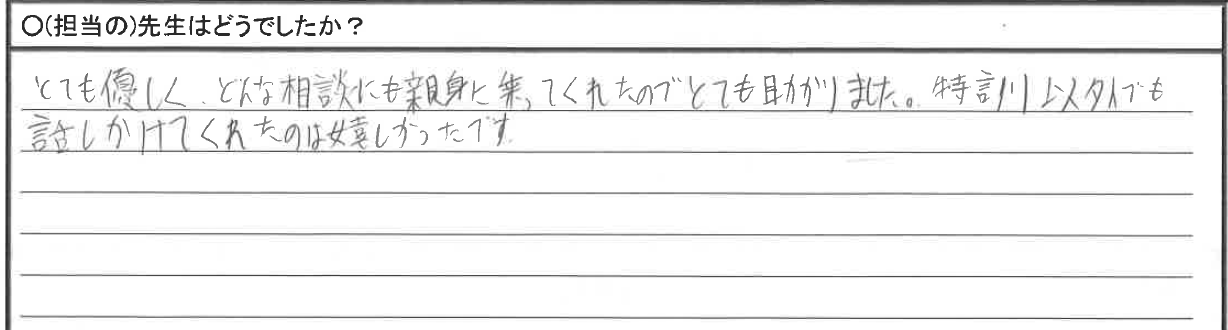 〇(担当の)先生はどうでしたか?
とても優しく、どんな相談にも親身に乗ってくれたのでとても助かりました。特訓以外でも
話しかけてくれたのは嬉しかったです。